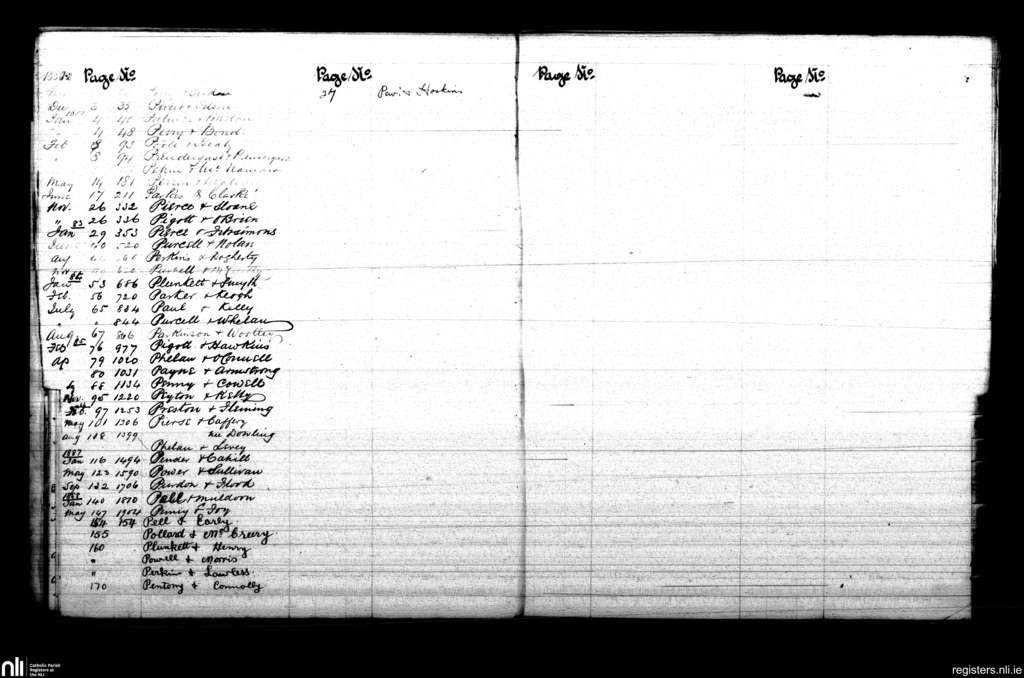 Page No. Page No. Page No. Page No.
37 & Hoskins
Dec 3 35
Jan 4
4 48 Perry & Bond
Feb 8 93
" 8 94
May 14 181
June 17 211 Parkes & Clarke
Nov. 26 332 Pierce & Sloane
" 26 336 Pigott & O'Brien
Jan 83 29 353 Pierce & Fitzsimons
520 Purcell & Nolan
Aug Perkins & Dogherty
Nov Purcell & McCarthy
Jan 84 53 686 Plunkett & Smyth
Feb. 56 720 Parker & Keogh
July 65 834 Paul & Kelly
" " 844 Purcell & Whelan
Aug 67 866 Parkinson & Woolley
Feb 85 76 977 Pigott & Hawkins
Ap 79 1020 Phelan & O'Connell
80 1031 Payne & Armstrong
88 1134 Penny & Cowell
Nov. 95 1220 Peyton & Kelly
Feb. 97 1253 Preston & Fleming
May 101 1306 Pierse & Caffery
Aug 108 1399 nee Dowling
Phelan & Levey
1887
Jan 116 1494 Pender & Cahill
May 123 1590 Power & Sullivan
Sep 132 1706 Purdon & Flood
1888
Jan 140 1810 Pell & Muldoon
May 147 1904 & Foy
154 154 Pell & Early
155 Pollard & McCreery
160 Plunkett & Henry
" Powell & Morris
" Perkins & Lawless.
170 Pentony & Connolly
nli Catholic Parish
Registers at
the NLI
registers.nli.ie